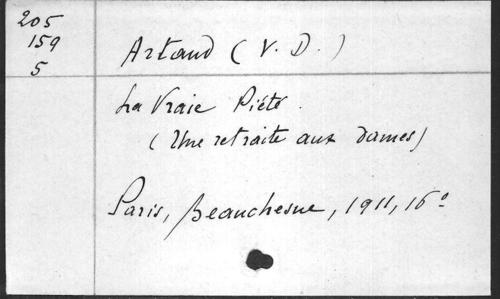 205
159
5
Artaud (V. D.)
La Vraie Piété.
(Une retraite aux Dames)
Paris, Beauchesne, 1911, 16°